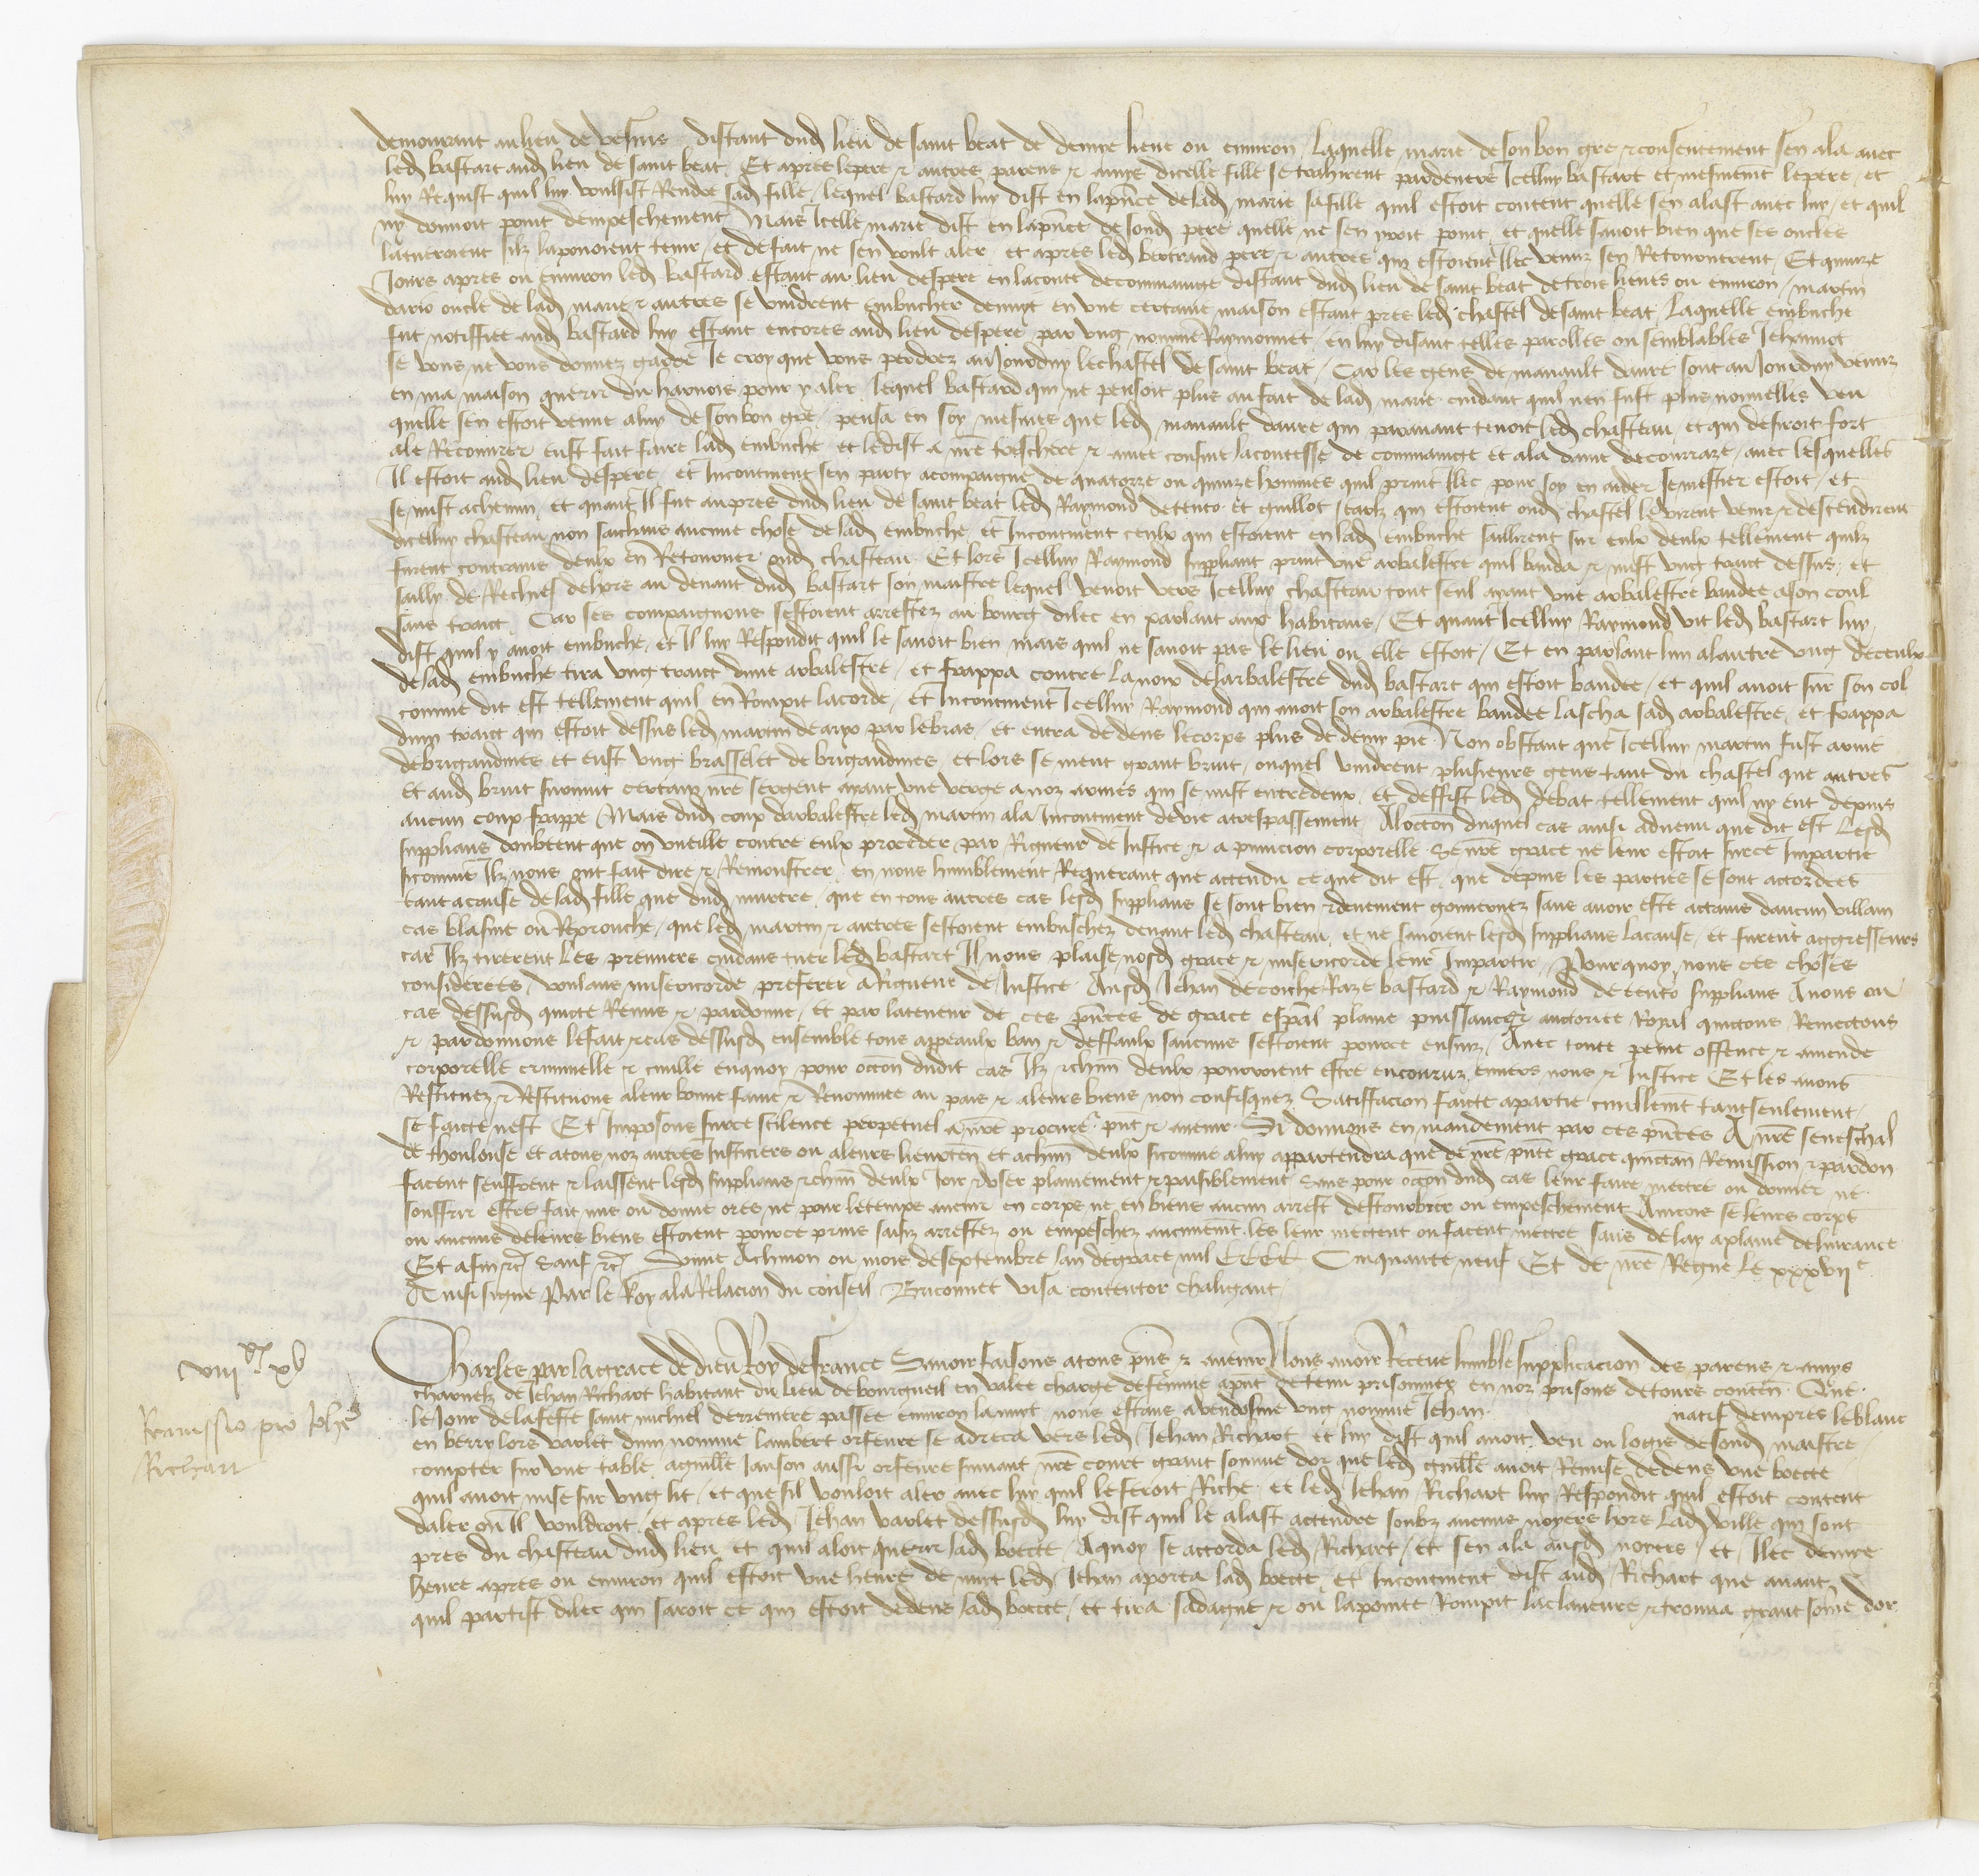 demourant au lieu de distant dud lieu de saint beat de demye lieue ou environ Laquelle marie de son bon gre & consentement sen ala avec
led bastart aud lieu de saint beat. Et apres le pere & autres parens & amys dicelle fille se trahirent pardevers Icelluy bastart et mesmemt le pere, et
luy Requist quil luy voulsist Rendre sad fille, lequel bastard luy dist en lapnce delad marie sa fille quil estoit content quelle sen alast avec luy, et quil
ny donnoit point dempeschement Mais Icelle marie dist en lapnce desond pere quelle ne sen yroit point et quelle savoit bien que ses oncles
la tueroient silz la povoient tenir, et de fait ne sen voult aler, et apres led bertrand pere & autres qui estoient Ilec venuz sen Retournerent, Et quinze
Jours apres ou environ led bastard estant au lieu despere en la conte de comminge distant dud lieu de saint beat de trois lieues ou environ, martin
daxio oncle de lad marie & autres se vindrent embucher de nuyt en une certaine maison estant pres led chastel de saint beat, Laquelle embuche
fut notiffiee aud bastard luy estant encores aud lieu despere par ung nomme Raymonnet, en luy disant telles parolles ou semblables Jehannot
se vous ne vous donnez garde Je croy que vous perdrez au Jourduy le chastel de saint beat, Car les gens de manault daure sont au Jourduy venuz
en ma maison querir du harnois pour y aler, lequel bastard qui ne pensoit plus au fait de lad marie cuidant quil nen fust plus nouvelles veu
quelle sen estoit venue a luy de son bon gre, pensa en soy mesmes que led manault daure qui paravant tenoit led chasteau, et qui desiroit fort
a le Recouvrer eust fait faire lad embuche et le dist a nre treschere & amee cousine la contesse de comminge et a la dame de courraze, avec lesquelles
Il estoit aud lieu despere, et Incontinent sen party acompaigne de quatorze ou quinze hommes quil print Ilec pour soy en aider se mestier estoit, et
se mist achemin, et quant Il fut aupres dud lieu de saint beat led Raymond detento et guillot qui estoient oud chastel le virent venir & descendirent
dicelluy chasteau non saichans aucune chose de lad embuche, et Incontinent ceulx qui estoient en lad embuche saillirent sur eulx deulx tellement quilz
furent contrains deulx en Retourner oud chasteau. Et lors Icelluy Raymond suppliant print une arbalestre quil banda & mist ung traict dessus, et
sailly de Rechief dehors au devant dud bastart son maistre lequel venoit vers Icelluy chasteau tout seul ayant une arbalestre bandee a son coul
sans traict, Car ses compaignons sestoient arrestez au bourg dilec en parlant aux habitans, Et quant Icelluy Raymond vit led bastart luy
dist quil y avoit embuche, et Il luy Respondit quil le savoit bien mais quil ne savoit pas le lieu ou elle estoit, Et en parlant lun a lautre ung de ceulx
de lad embuche tira ung traict dune arbalestre, et frappa contre la noix de larbalestre dud bastart qui estoit bandee, et quil avoit sur son col
comme dit est tellement quil en Rompit la corde, Et Incontinent Icelluy Raymond qui avoit son arbalestre bandee lascha sad arbalestre, et frappa
duny traict qui estoit dessus led martin par le bras, et entra dedens le corps plus de demy pie Non obstant que Icelluy martin fust arme
de brigandines et eust ung brasselet de brigandines, et lors se meut grant bruit, ouquel vindrent plusieurs gens tant du chastel que autres
Et aud bruit survint certain nre sergent ayant une verge a noz armes qui se mist entredeux, et deffist led debat tellement quil ny eut depuis
aucun coup frappe Mais dud coup darbalestre led martin ala Incontinent de vie a trespassement Aloccon duquel cas ainsi advenu que dit est Lesd
supplians doubtent que on vueille contre eulx proceder par Rigueur de Justice & a punicion corporelle Se nre grace ne leur estoit sur ce Impartie
sicomme Ilz nous ont fait dire & Remonstrer en nous humblement Requerant que actendu ce que dit est, que depuis les parties se sont accordees
tant acause de lad fille que dud murtre, que en tous autres cas lesd supplians se sont bien & deuement gouvernez sans avoir este actains daucun villain
cas blasme ou Reprouche, que led martin & autres sestoient embuschez devant led chasteau, et ne savoient lesd supplians la cause, et furent aggresseurs
car Ilz tirerent Les premiers cuidans tuer led bastart Il nous plaise nosd grace & misericorde leur Impartir Pourquoy nous ces choses
considerees, voulans misericorde preferer a Rigueur de Justice Ausd Jehan bastard & Raymond detento supplians Avons ou
cas dessusd quicte Remis & pardonne, Et par la teneur de ces pntes de grace espal plaine puissance & auctorite Royal quictons Remectons
& pardonnons le fait & cas dessusd ensemble tous appeaulx ban & deffaulx saucuns sestoient pource ensuiz, Avec toute peine offence & amende
corporelle criminelle & civille enquoy pour occon dudit cas Ilz & chun deulx pourroient estre encouruz envers nous & Justice Et les avons
Restituez & Restituons a leur bonne fame & Renommee au pais & a leurs biens non confisquez Satiffacion faicte a partie civillemt tant seulement,
se faicte nest Et Imposons sur ce scilence perpetuel a nre procureur pnt & avenir. Si donnons en mandement par ces pntes A nre seneschal
de thoulouse et atous noz autres Justiciers ou a leurs lieuxten et achun deulx sicomme a luy appartendra que de nre pnte grace quictan Remission & pardon
facent seuffrent & laissent lesd supplians & chun deulx Joir & user plainement & paisiblement sans pour occon dud cas leur faire mectre ou donner ne
souffrir estre fait mis ou donne ores ne pour le temps avenir en corps ne en biens aucun arrest destourbier ou empeschement Aincois se leurs corps
ou aucuns de leurs biens estoient pource prins saisiz arrestez ou empeschez aucunemt les leur mectent ou facent mectre sans delay a plaine delivrance
Et afin &c Sauf &c Donne Achinon ou mois de septembre lan de grace mil CCCC Cinquante neuf Et de nre Regne Le xxxviie
Ainsi signe Par le Roy ala Relacion du conseil Briconnet visa contentor chaligaut

viiixx xv
Remissio pro Johe
Richart
Charles par la grace de dieu Roy de france Savoir faisons atous pns & avenir Nous avoir Receue humble supplicacion des parens & amys
charnelz de Jehan Richart habitant du lieu de bourgueil en valee charge de femme apnt detenu prisonnier en noz prisons de tours conten. Que
le Jour de la feste saint michiel derreniere passee environ la nuit nous estans a vendosme ung nomme Jehan natif dempres leblanc
en berry lors varlet dun nomme lambert orfevre se adreca vers led Jehan Richart et luy dist quil avoit veu ou logis de sond maistre
compter sur une table aguille Janson aussi orfevre suivant nre court grant somme dor que led guille avoit Remise dedens une boecte
quil avoit mise sur ung lit, et que sil vouloit aler avec luy quil le feroit Riche et led Jehan Richart luy Respondit quil estoit content
daler ou Il vouldroit, et apres led Jehan varlet dessusd luy dist quil le alast actendre soubz aucuns noyers hors Lad ville qui sont
pres du chasteau dud lieu et quil aloit querir lad boecte, Aquoy se accorda led Richart, et sen ala ausd noyers, et Ilec demye
heure apres ou environ quil estoit une heure de nuit led Jehan aporta lad boecte, et Incontinent dist aud Richart que avant
quil partist dilec quil sauroit ce qui estoit dedens lad boecte, et tira sa dague & ou la pointe Rompit la claveure & trouva grant some dor